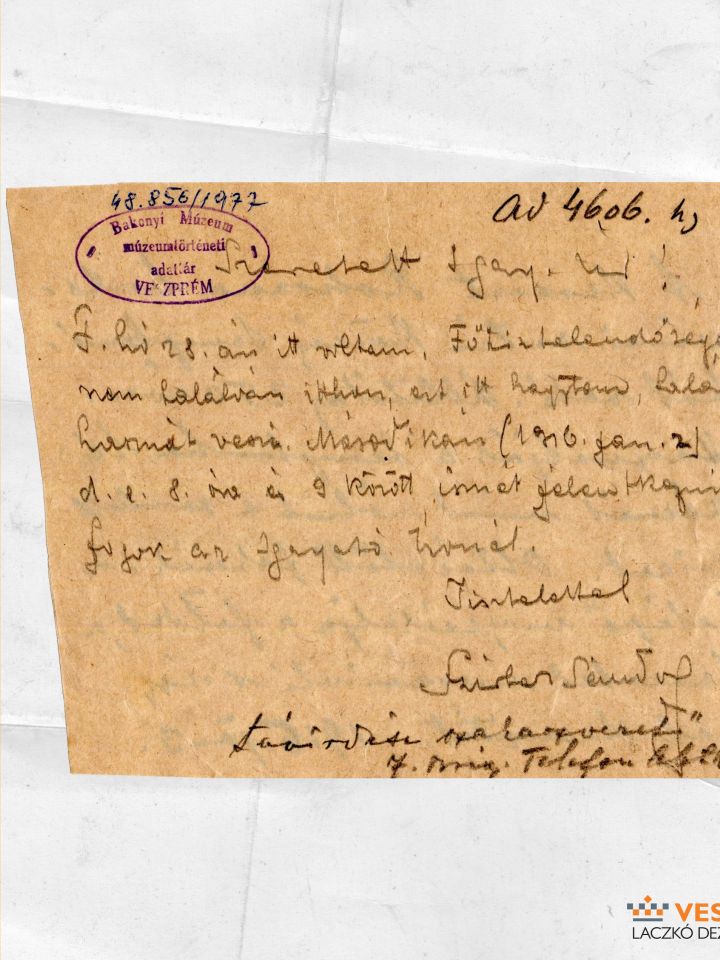 48.856/1977
AD 4606. h)
Bakonyi Múzeum
múzeumtörténeti
adattár
VESZPRÉM
Szeretett Igazg. Úr!
F. hó 28.-án itt voltam, Főtisztelendőség
nem találván itthon, ezt itt hagytam,
Másodikán (1916. jan. 2)
d. e. 8. óra és 9 között ismét jelentkezni
fogok az Igazgató Úrnál.
Tisztelettel
Sándor
távirdász szakaszvezető
7. Telefon
VES
LACZKÓ DEZ